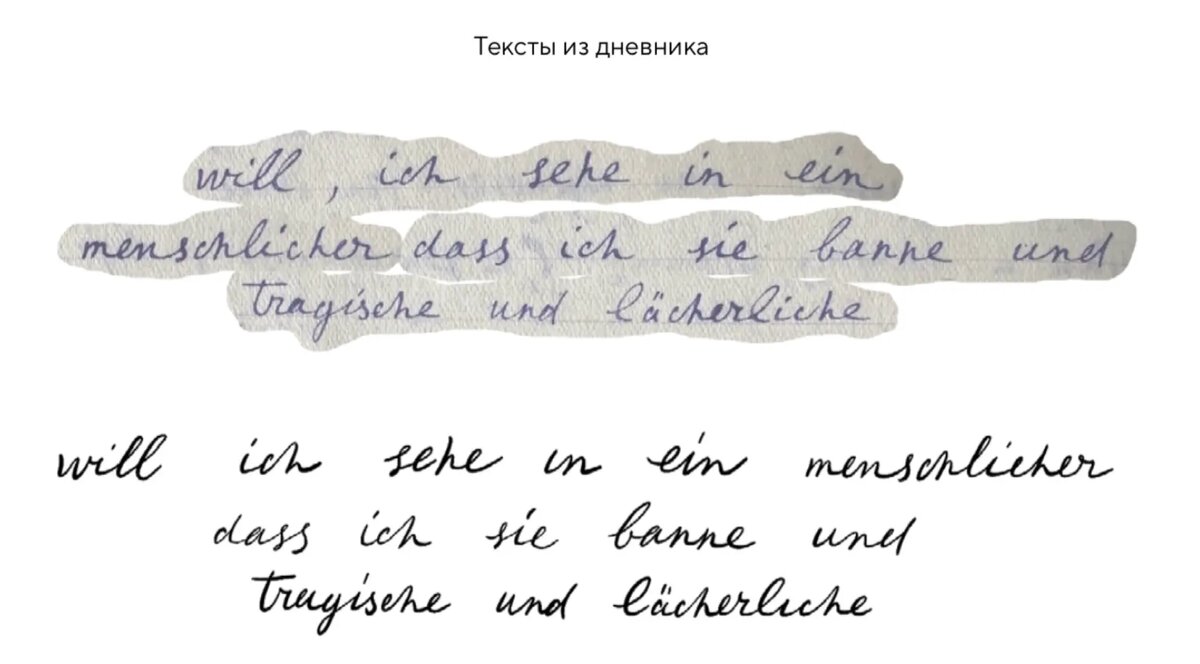 Тексты из дневника
will, ich sehe in ein
menschlicher dass ich sie banne und
tragische und lächerliche
will ich sehe in ein menschlicher
dass ich sie banne und
tragische und lächerliche